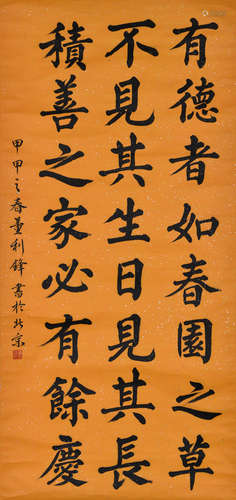 有德者如春園之草
不見其生日見其長
積善之家必有餘慶
甲申之春董利鋒書於北京